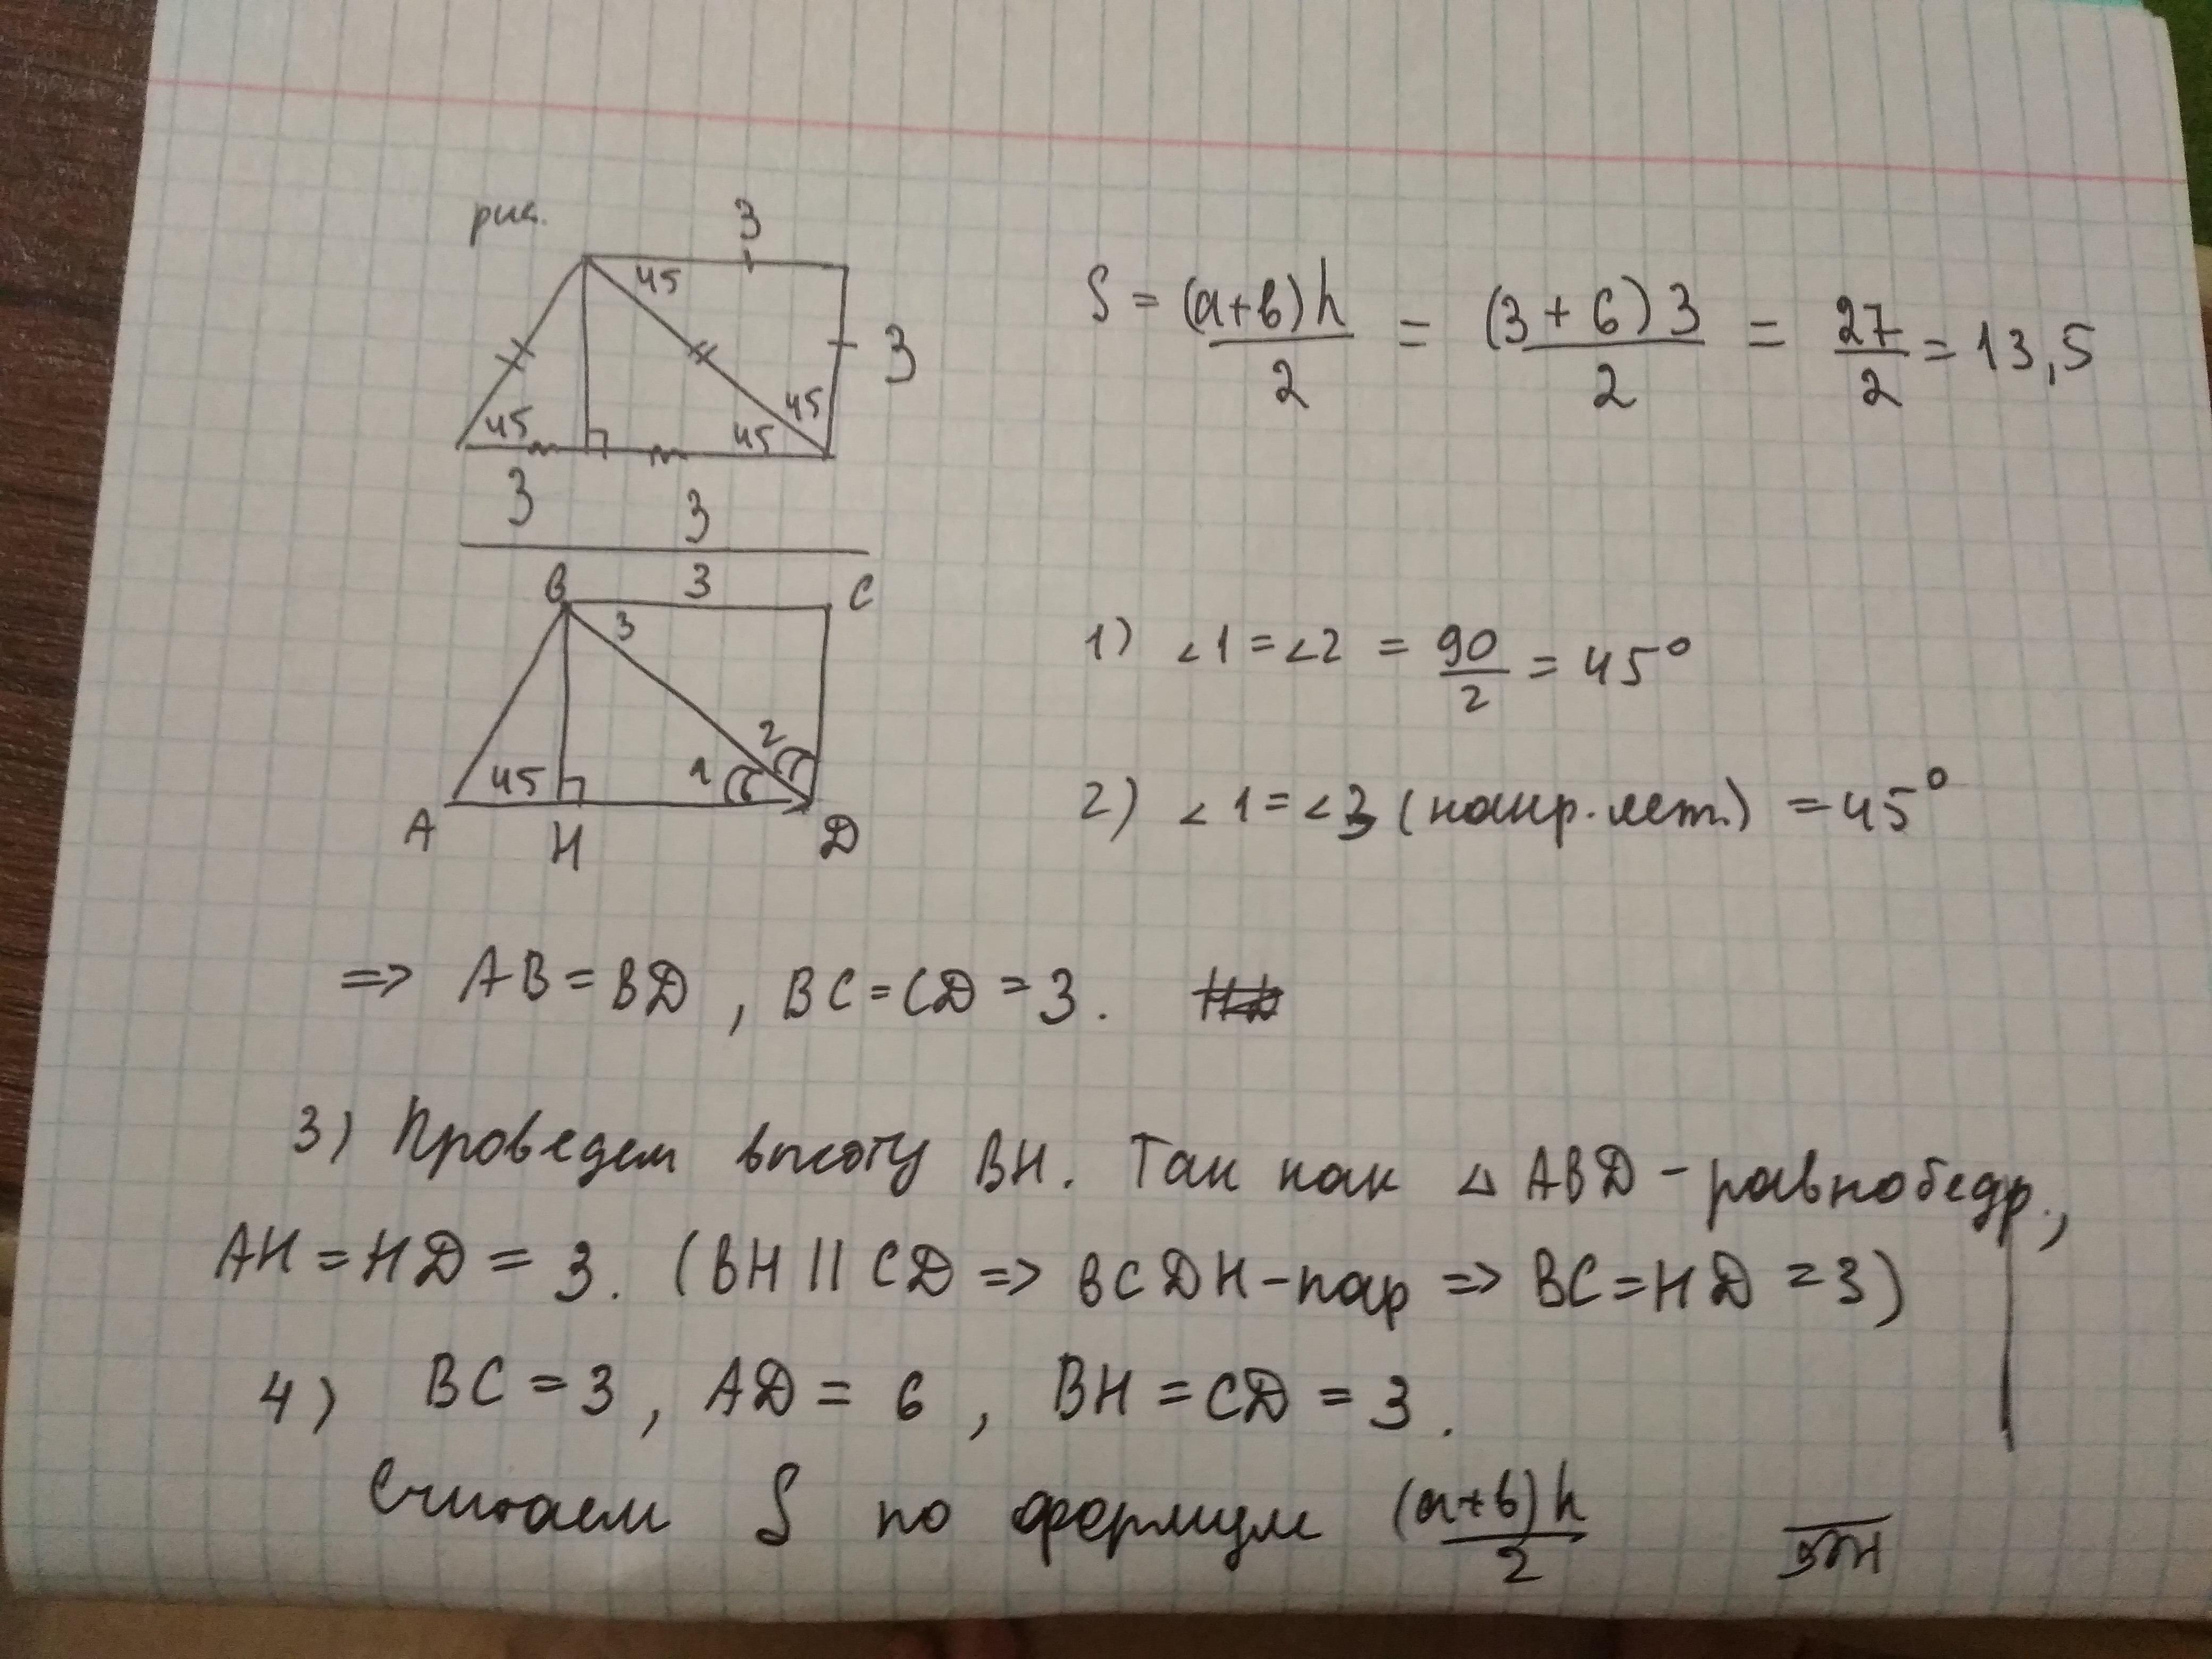 рис.
3
45
3
45
45
45
3
3
S = (a+b)h/2 = (3+6)3/2 = 27/2 = 13,5
B 3 C
3
2
45
1
A H D
1) ∠1=∠2 = 90/2 = 45°
2) ∠1=∠3 (накр. леж.) = 45°
=> AB=BD, BC=CD=3.
3) Проведем высоту BH. Так как △ABD - равнобедр.,
AH=HD=3. (BH || CD => BCDH-пар => BC=HD=3)
4) BC=3, AD=6, BH=CD=3.
Считаем S по формуле (a+b)h/2